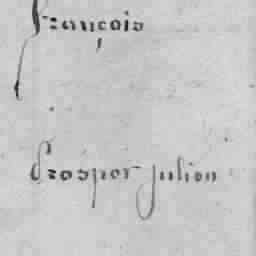 françois
Prosper julien